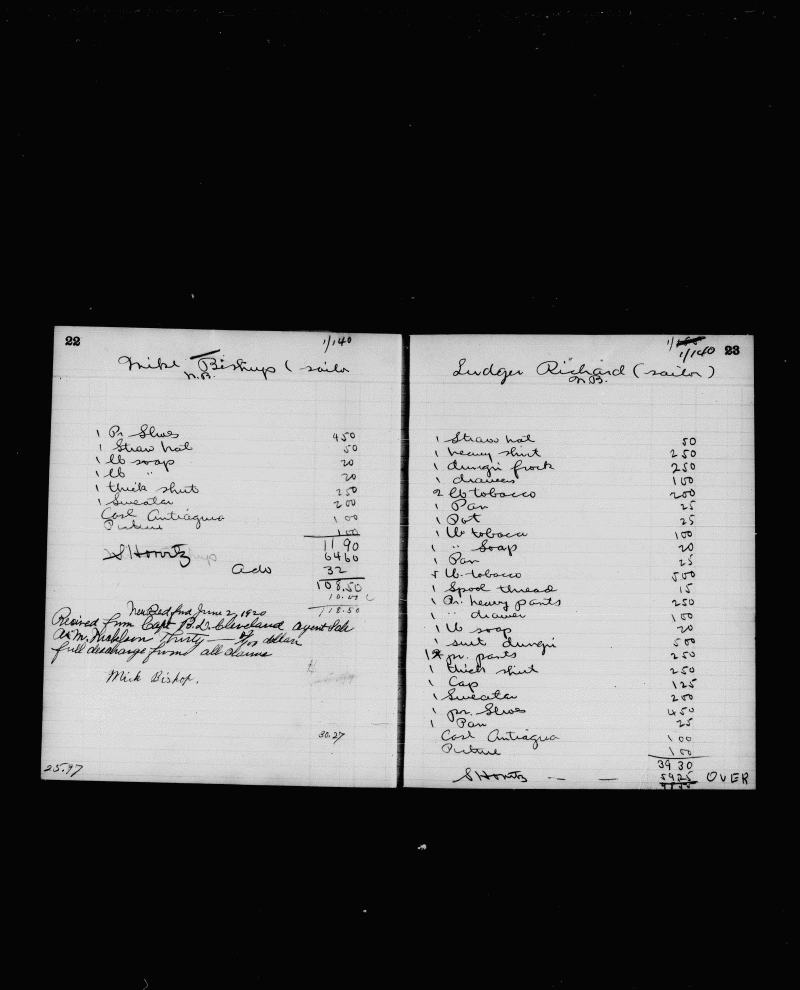 22
1/140
Mike Bishup (sailor
N.B.
1 Pr Shoes 450
1 Straw hat 50
1 lb soap 20
1 lb " 20
1 thick shirt 250
1 Sweatar 200
Cash Antiaqua 100
Picture 100
11 90
S Horvitz 64 60
Ado 32
108.50
118.50
New Bedford June 2, 1920
Recived from Capt B.D. Cleveland agent Sch
A. M. Nicholson Thirty dollars
full discharge from all claims
Mick Bishop.
30.27
25.97
23
1/140
Ludger Richard (sailor)
N.B.
1 Straw hat 50
1 heavy shirt 250
1 dungri frock 250
1 drawers 100
2 lb tobacco 200
1 Pan 25
1 Pot 25
1 lb tobacco 100
1 " Soap 20
1 Pan 25
5 lb tobacco 500
1 Spool thread 15
1 Pr. heavy pants 250
1 " drawer 100
1 lb soap 20
1 suit dungri 500
1 pr. pants 250
1 thick shirt 250
1 Cap 125
1 Sweatar 200
1 pr. Shoes 450
1 Pan 25
Cash Antiaqua 100
Picture 100
39 30
S Horvitz — — 59 25 OVER